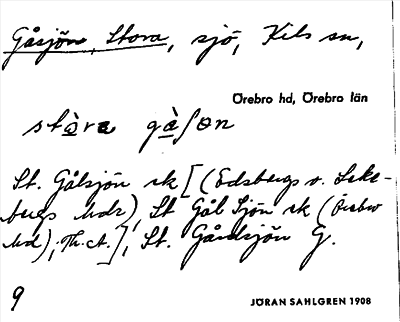 Gåsjön, Stora, sjö, Kils sn,
Örebro hd, Örebro län
stòra gàʃɵn
St. Gålsjön rk [(Edsbergs o. Leke-
bergs hdr), St Gål Sjön rk (Örebro
hd); Th. A.], St. Gårdsjön G.
9
JÖRAN SAHLGREN 1908